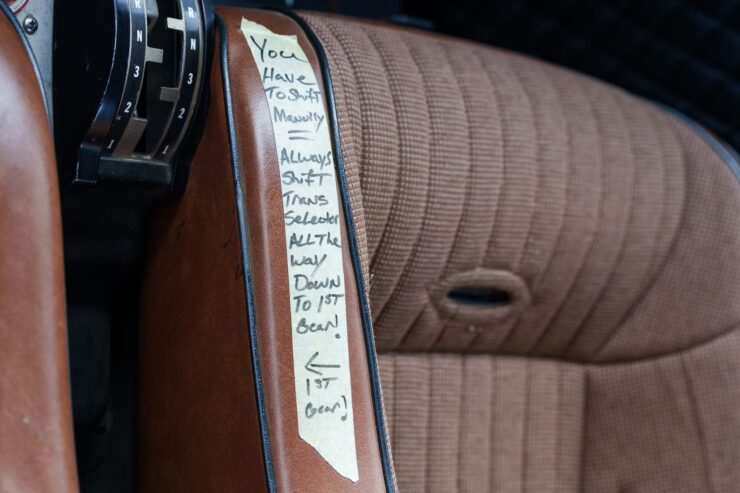 R
N
3
2
1
R
N
3
2
1
You
Have
To Shift
Manully
Always
Shift
Trans
Selector
ALL The
Way
Down
To 1ST
Gear!
← 
1ST
Gear!